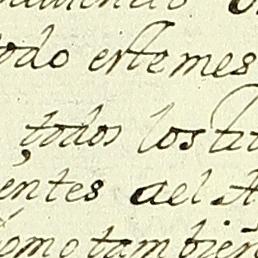 odo este mes
todos los tit
entes del A
como tambien